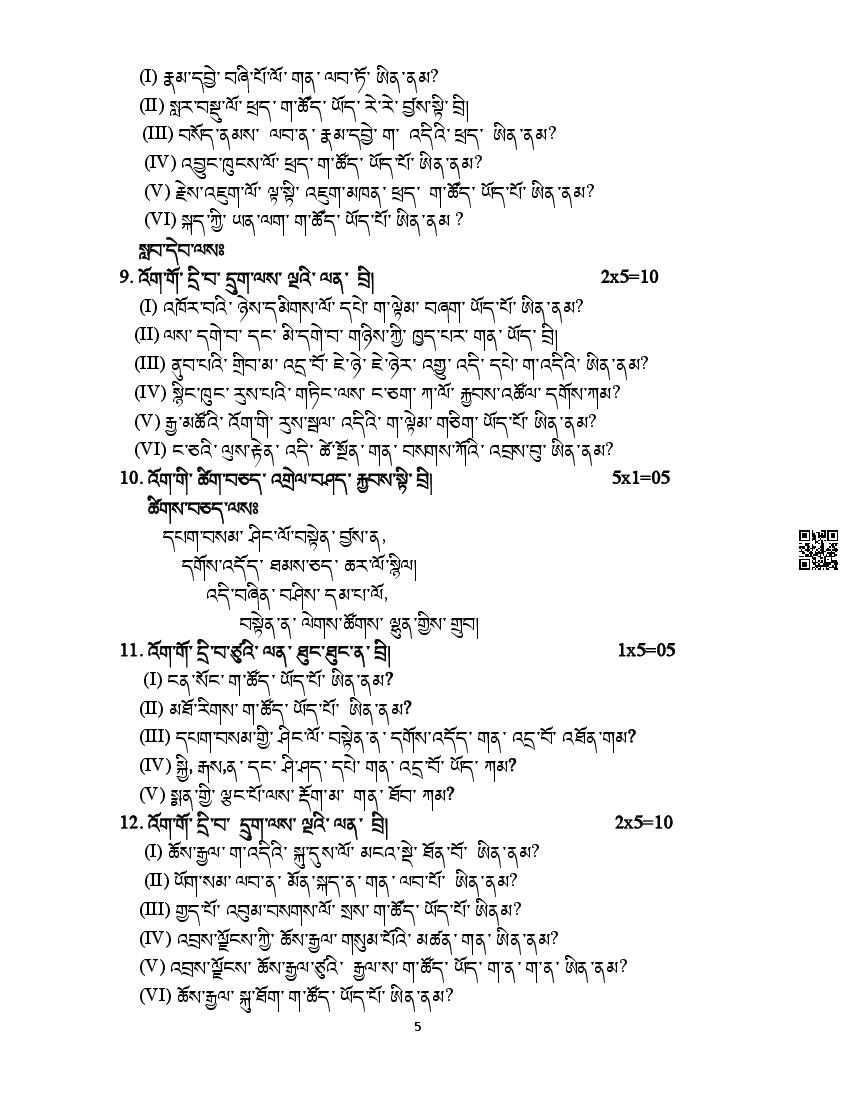 (I) རྣམ་དབྱེ་ བཞི་པོ་ལོ་ གན་ ལབ་ཏོ་ ཨིན་ནམ?
(II) སླར་བསྡུ་ལོ་ ཕྲད་ ག་ཚོད་ ཡོད་ རེ་རེ་ བྱས་སྟི་ བྲི།
(III) བསོད་ནམས་ ལབ་ན་ རྣམ་དབྱེ་ ག་ འདིའི་ ཕྲད་ ཨིན་ནམ?
(IV) འབྱུང་ཁུངས་ལོ་ ཕྲད་ ག་ཚོད་ ཡོད་པོ་ ཨིན་ནམ?
(V) རྗེས་འཇུག་ལོ་ ལྟ་སྟི་ འཇུག་མཁན་ ཕྲད་ ག་ཚོད་ ཡོད་པོ་ ཨིན་ནམ?
(VI) སྐད་ཀྱི་ ཡན་ལག་ ག་ཚོད་ ཡོད་པོ་ ཨིན་ནམ ?
སློབ་དེབ་ལསཿ
9. འོག་གོ་ དྲི་བ་ དྲུག་ལས་ ལྔའི་ ལན་ བྲི། 2x5=10
(I) འཁོར་བའི་ ཉེས་དམིགས་ལོ་ དཔེ་ ག་ལྟེམ་ བཞག་ ཡོད་པོ་ ཨིན་ནམ?
(II) ལས་ དགེ་བ་ དང་ མི་དགེ་བ་ གཉིས་ཀྱི་ ཁྱད་པར་ གན་ ཡོད་ བྲི།
(III) ནུབ་པའི་ གྲིབ་མ་ འདྲ་བོ་ ཇེ་ཉེ་ ཇེ་ཉེར་ འགྱུ་ འདི་ དཔེ་ ག་འདིའི་ ཨིན་ནམ?
(IV) སྙིང་ཁུང་ རུས་པའི་ གཏིང་ལས་ ང་ཅག་ ཀ་ལོ་ རྐྱབས་འཚོལ་ དགོས་ཀམ?
(V) རྒྱ་མཚོའི་ འོག་གི་ རུས་སྦལ་ འདིའི་ ག་ལྟེམ་ གཅིག་ ཡོད་པོ་ ཨིན་ནམ?
(VI) ང་ཅའི་ ལུས་རྟེན་ འདི་ ཚེ་སྔོན་ གན་ བསགས་ཀོའི་ འབྲས་བུ་ ཨིན་ནམ?
10. འོག་གི་ ཚིག་བཅད་ འགྲེལ་བཤད་ རྐྱབས་སྟི་ བྲི། 5x1=05
ཚིགས་བཅད་ལསཿ
དཔག་བསམ་ ཤིང་ལོ་བསྟེན་ བྱས་ན,
དགོས་འདོད་ ཐམས་ཅད་ ཆར་ལོ་སྙིལ།
འདི་བཞིན་ བཤིས་ དམ་པ་ལོ,
བསྟེན་ན་ ལེགས་ཚོགས་ ལྷུན་གྱིས་ གྲུབ།
11. འོག་གོ་ དྲི་བ་ཙུའི་ ལན་ ཐུང་ཐུང་ན་ བྲི། 1x5=05
(I) ངན་སོང་ ག་ཚོད་ ཡོད་པོ་ ཨིན་ནམ?
(II) མཐོ་རིགས་ ག་ཚོད་ ཡོད་པོ་ ཨིན་ནམ?
(III) དཔག་བསམ་གྱི་ ཤིང་ལོ་ བསྟེན་ན་ དགོས་འདོད་ གན་ འདྲ་བོ་ འཐོན་གམ?
(IV) སྐྱི, རྒས,ན་ དང་ ཤི་ཤད་ དཔེ་ གན་ འདྲ་བོ་ ཡོད་ ཀམ?
(V) སྨན་གྱི་ ལྕང་པོ་ལས་ རྡོག་མ་ གན་ ཐོབ་ ཀམ?
12. འོག་གོ་ དྲི་བ་ དྲུག་ལས་ ལྔའི་ ལན་ བྲི། 2x5=10
(I) ཆོས་རྒྱལ་ ག་འདིའི་ སྐུ་དུས་ལོ་ མངའ་སྡེ་ ཐོན་བོ་ ཨིན་ནམ?
(II) ཡོག་སམ་ ལབ་ན་ མོན་སྐད་ན་ གན་ ལབ་པོ་ ཨིན་ནམ?
(III) གྱད་པོ་ འབུམ་བསགས་ལོ་ སྲས་ ག་ཚོད་ ཡོད་པོ་ ཨིནམ?
(IV) འབྲས་ལྗོངས་ཀྱི་ ཆོས་རྒྱལ་ གསུམ་པོའི་ མཚན་ གན་ ཨིན་ནམ?
(V) འབྲས་ལྗོངས་ ཆོས་རྒྱལ་ཙུའི་ རྒྱལ་ས་ ག་ཚོད་ ཡོད་ ག་ན་ ག་ན་ ཨིན་ནམ?
(VI) ཆོས་རྒྱལ་ སྐུ་ཐོག་ ག་ཚོད་ ཡོད་པོ་ ཨིན་ནམ?
5